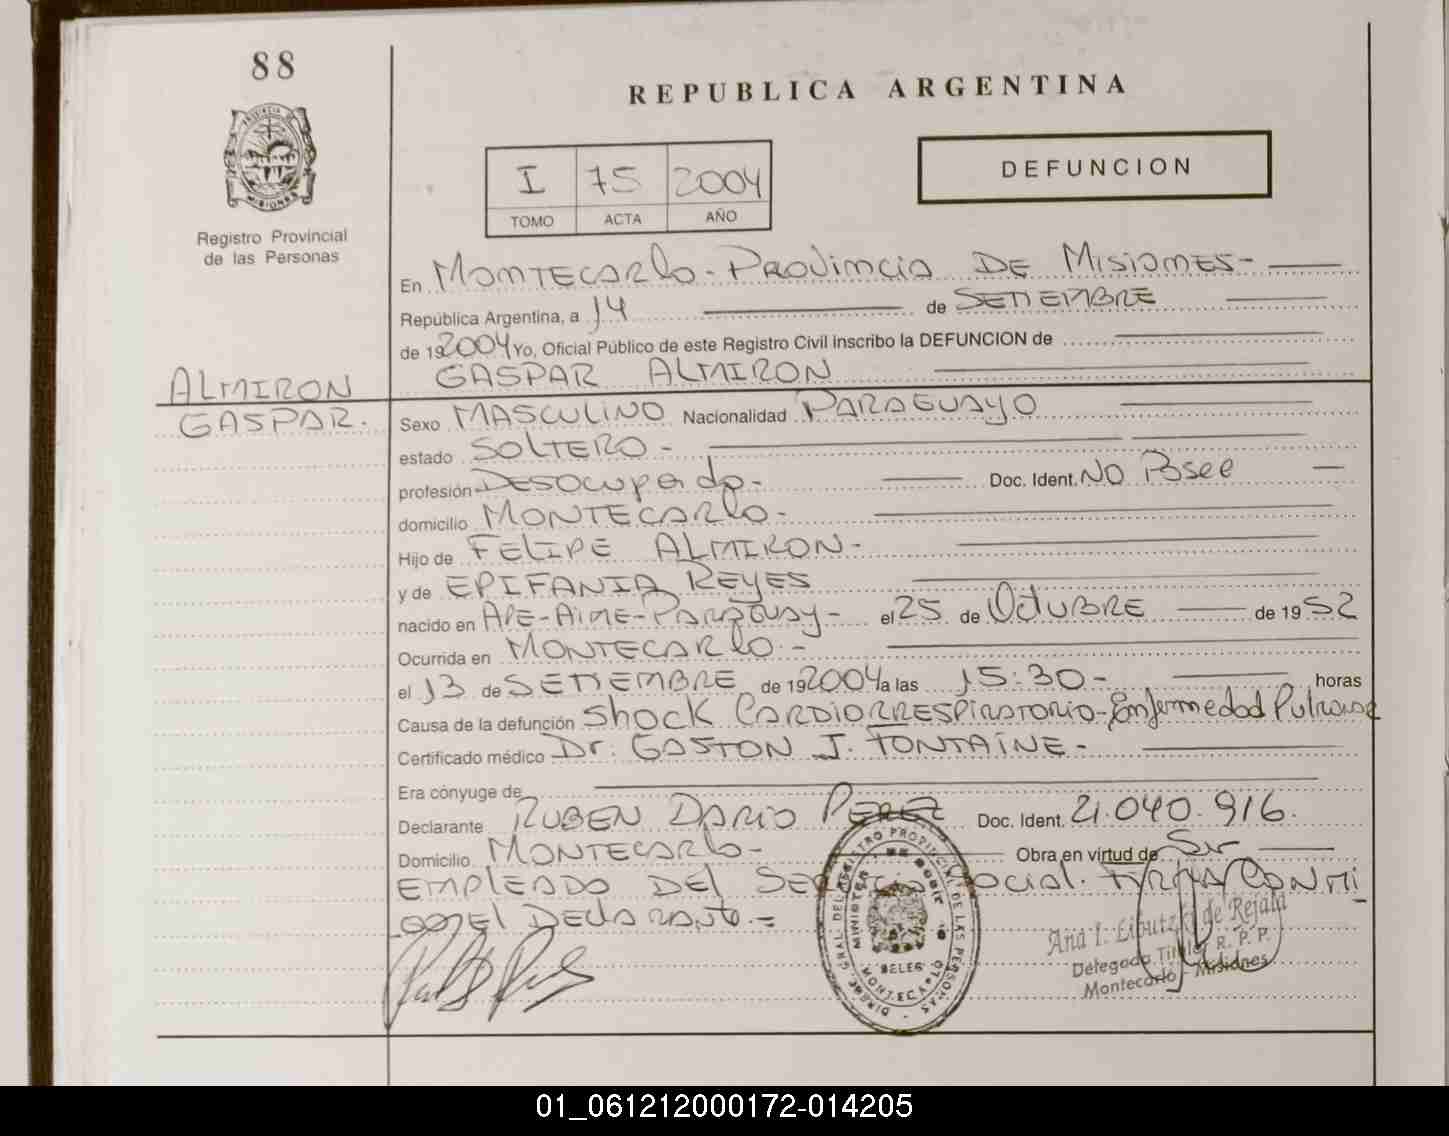 88
REPUBLICA ARGENTINA
PROVINCIA DE
MISIONES
I 75 2004
TOMO ACTA AÑO
DEFUNCION
Registro Provincial
de las Personas
En MONTECARLO - PROVINCIA DE MISIONES -
República Argentina, a 14 de SETIEMBRE
de 192004 Yo, Oficial Público de este Registro Civil inscribo la DEFUNCION de
GASPAR ALMIRON
ALMIRON
GASPAR.
Sexo MASCULINO Nacionalidad PARAGUAYO
estado SOLTERO -
profesión DESOCUPADO - Doc. Ident. NO Posee
domicilio MONTECARLO -
Hijo de FELIPE ALMIRON -
y de EPIFANIA REYES
nacido en APE-AIME-PARAGUAY - el 25 de OCTUBRE de 1952
Ocurrida en MONTECARLO. -
el 13 de SETIEMBRE de 192004 a las 15:30 - horas
Causa de la defunción SHOCK CARDIORRESPIRATORIO - Enfermedad
Certificado médico Dr: GASTON J. FONTAINE -
Era cónyuge de
Declarante RUBEN DARIO PEREZ Doc. Ident. 21.040.916.
Domicilio MONTECARLO - Obra en virtud de Ser
EMPLEADO DEL SERVICIO SOCIAL. FIRMA CONMI
GO EL DECLARANTE. =
DIREC. GRAL. DEL REGISTRO PROVINCIAL DE LAS PERSONAS
Ana I. de Rejala
Delegada Titular R. P. P.
Montecarlo - Misiones
01_061212000172-014205